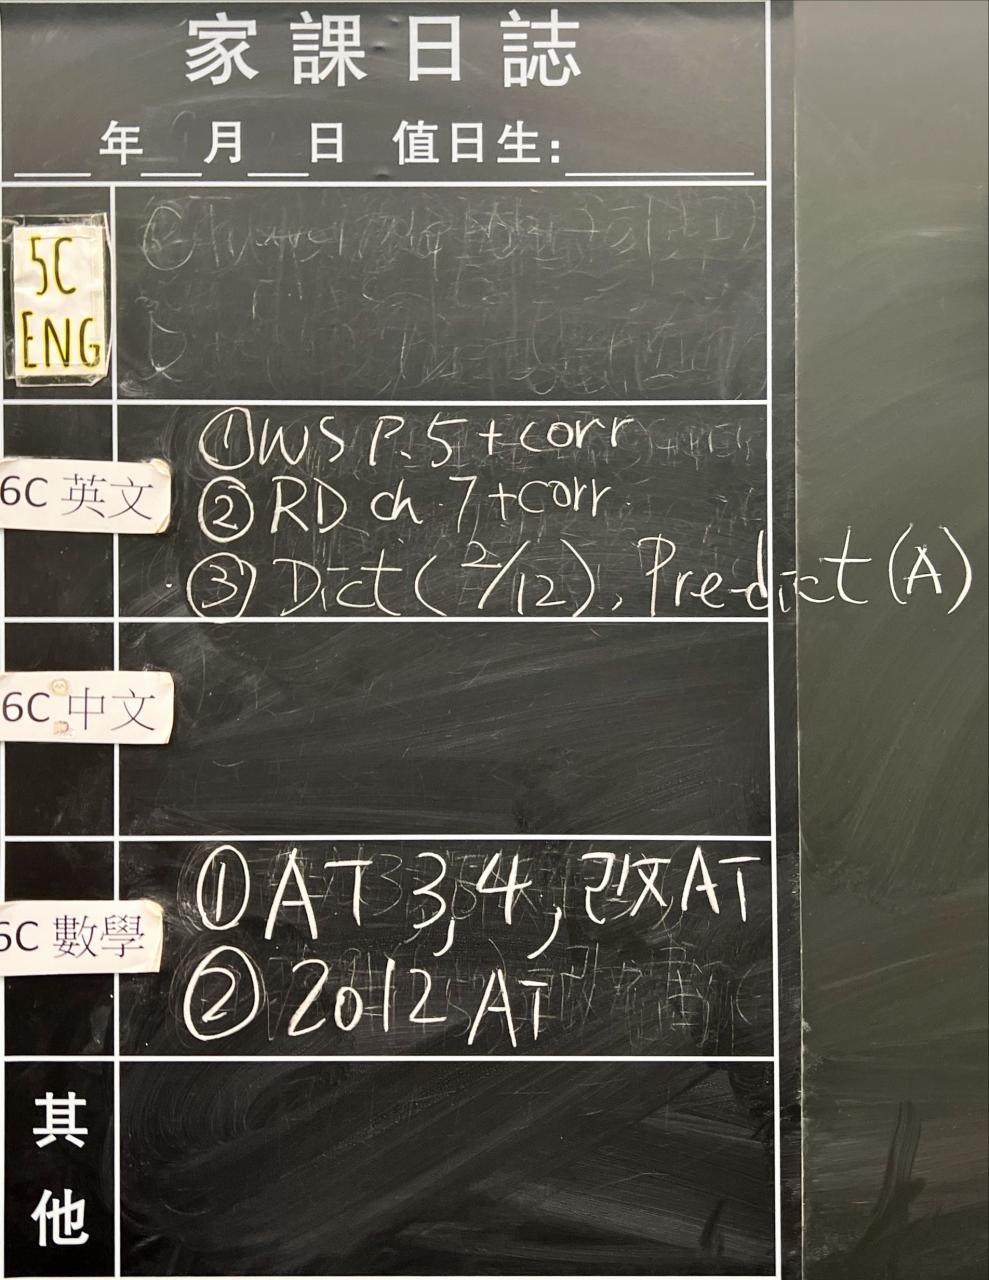 家課日誌
年 月 日 值日生：
5C
ENG
6C 英文
① WS P.5 + corr
② RD ch.7 + corr.
③ Dict (2/12), Predict (A)
6C 中文
6C 數學
① AT 3, 4, 改AT
② 2012 AT
其
他